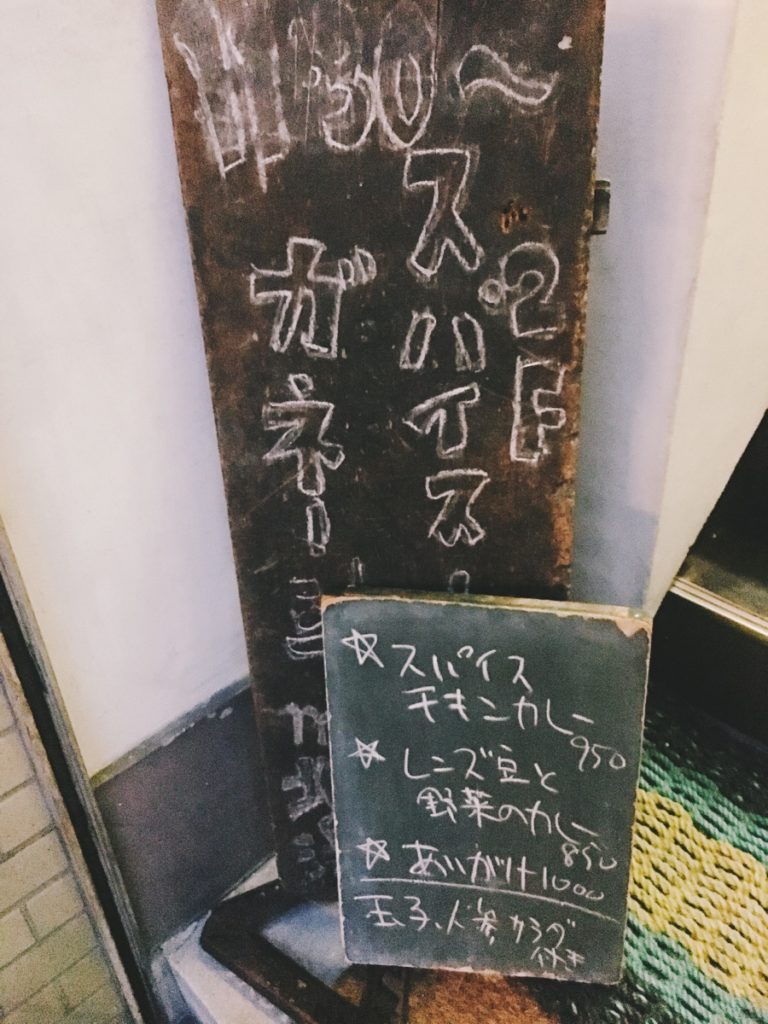 11:30〜
2F
スパイス
ガネー
☆スパイス
チキンカレー
950
☆レンズ豆と
野菜のカレー
850
☆あいがけ1000
玉子、人参、カラダ
付き